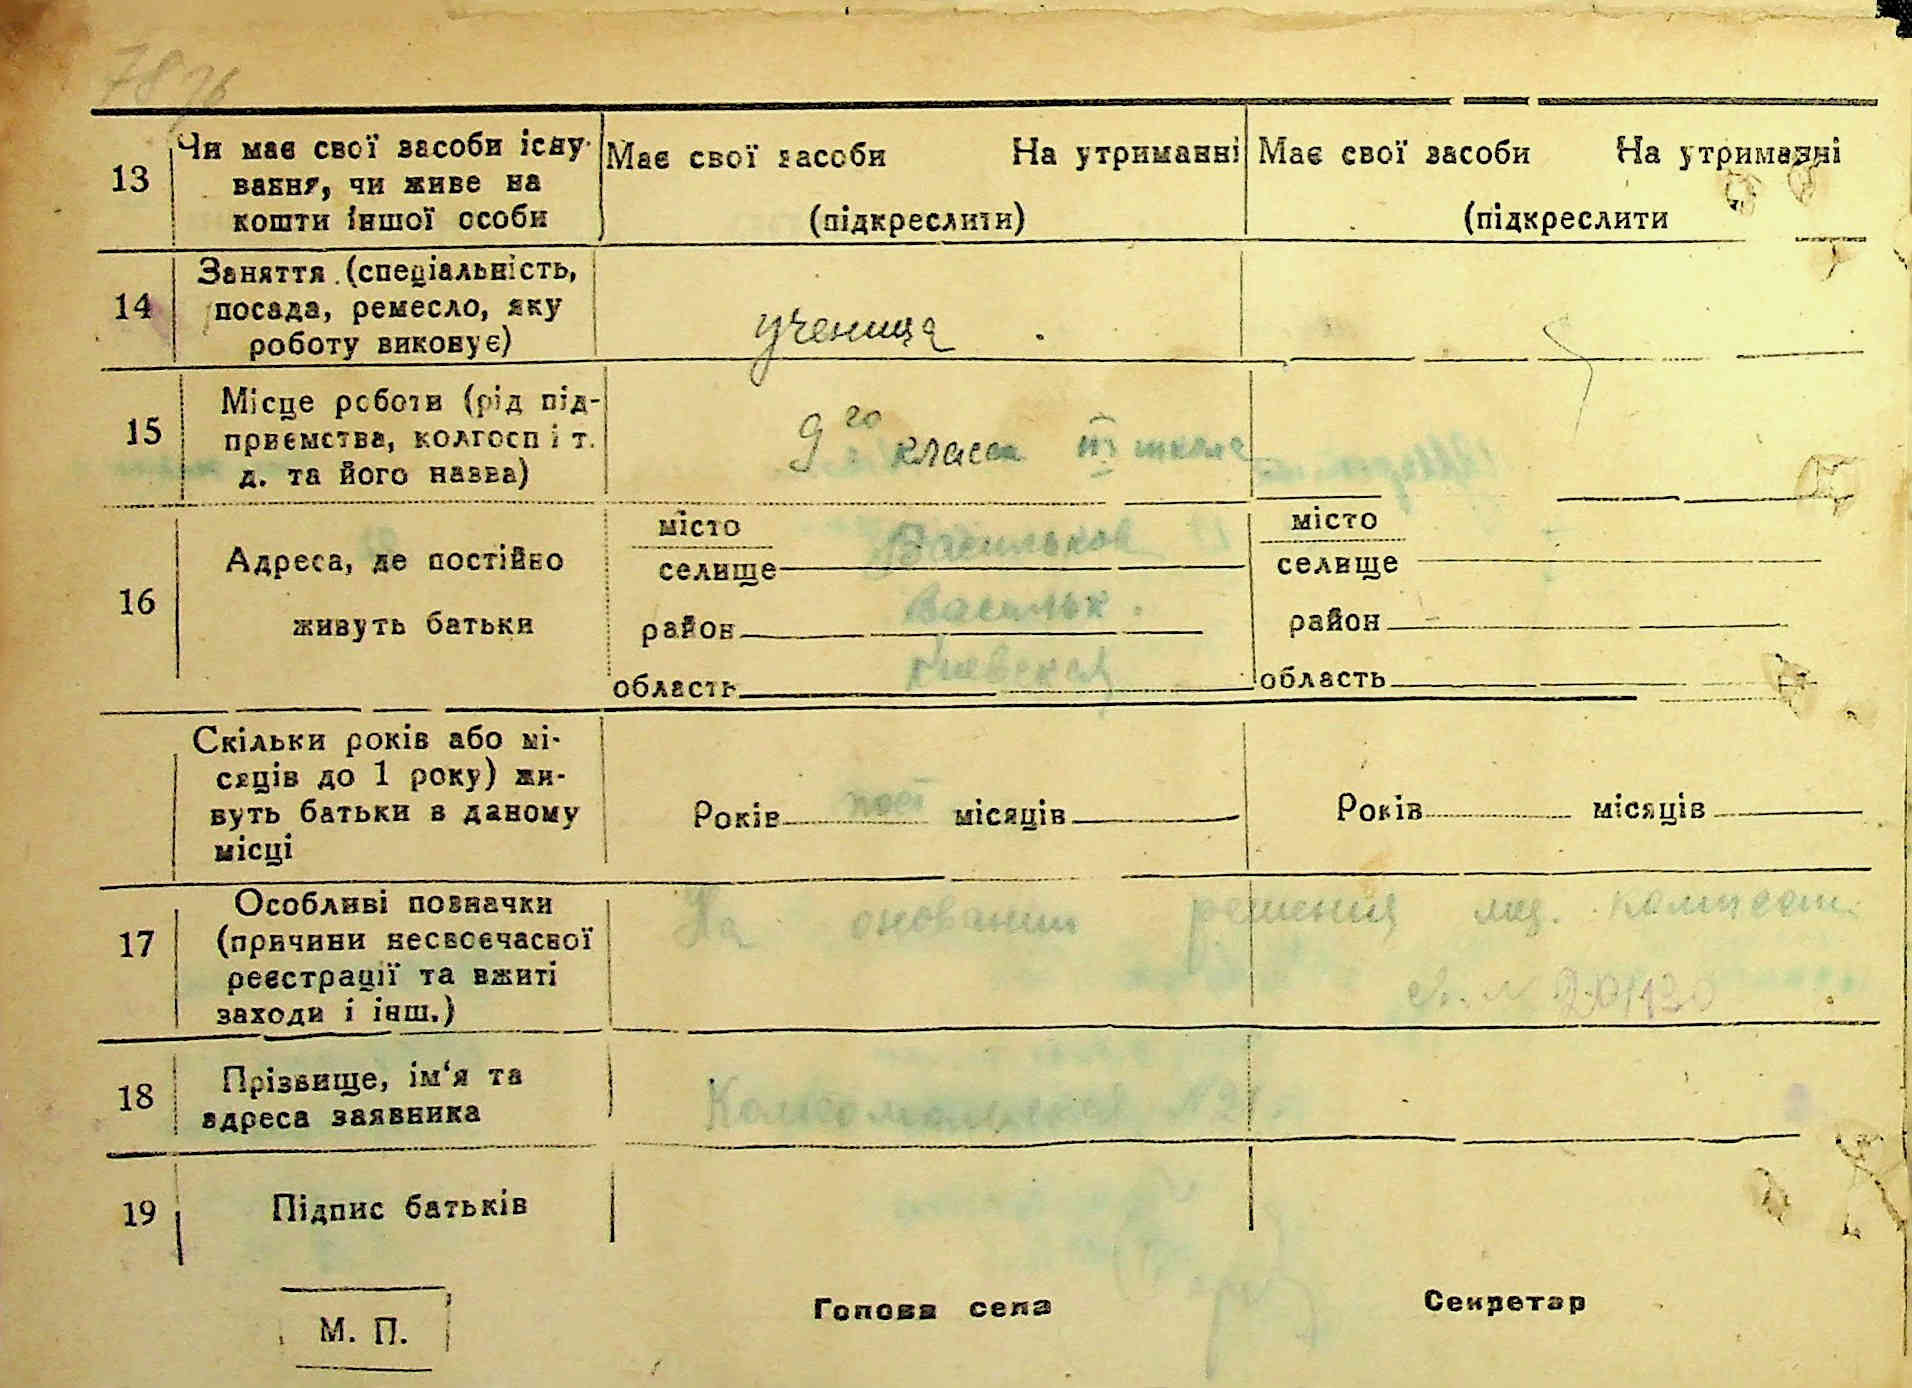 7876
13 Чи має свої засоби існу-
вання, чи живе на
кошти іншої особи
Має свої засоби На утриманні
(підкреслити)
Має свої засоби На утриманні
(підкреслити
14 Заняття (спеціальність,
посада, ремесло, яку
роботу виконує)
ученица
15 Місце роботи (рід під-
приємства, колгосп і т.
д. та його назва)
9го класса III школы
16 Адреса, де постійно
живуть батьки
місто
селище Васильков
район Васильк.
область Киевская
місто
селище
район
область
Скільки років або мі-
сяців до 1 року) жи-
вуть батьки в даному
місці
Років пост місяців
Років місяців
17 Особливі позначки
(причини несвоєчасної
реєстрації та вжиті
заходи і інш.)
На оновании решения мед. комиссии
№ 20/130
18 Прізвище, ім'я та
адреса заявника
Комсомольская №21
19 Підпис батьків
М. П.
Голова села
Секретар